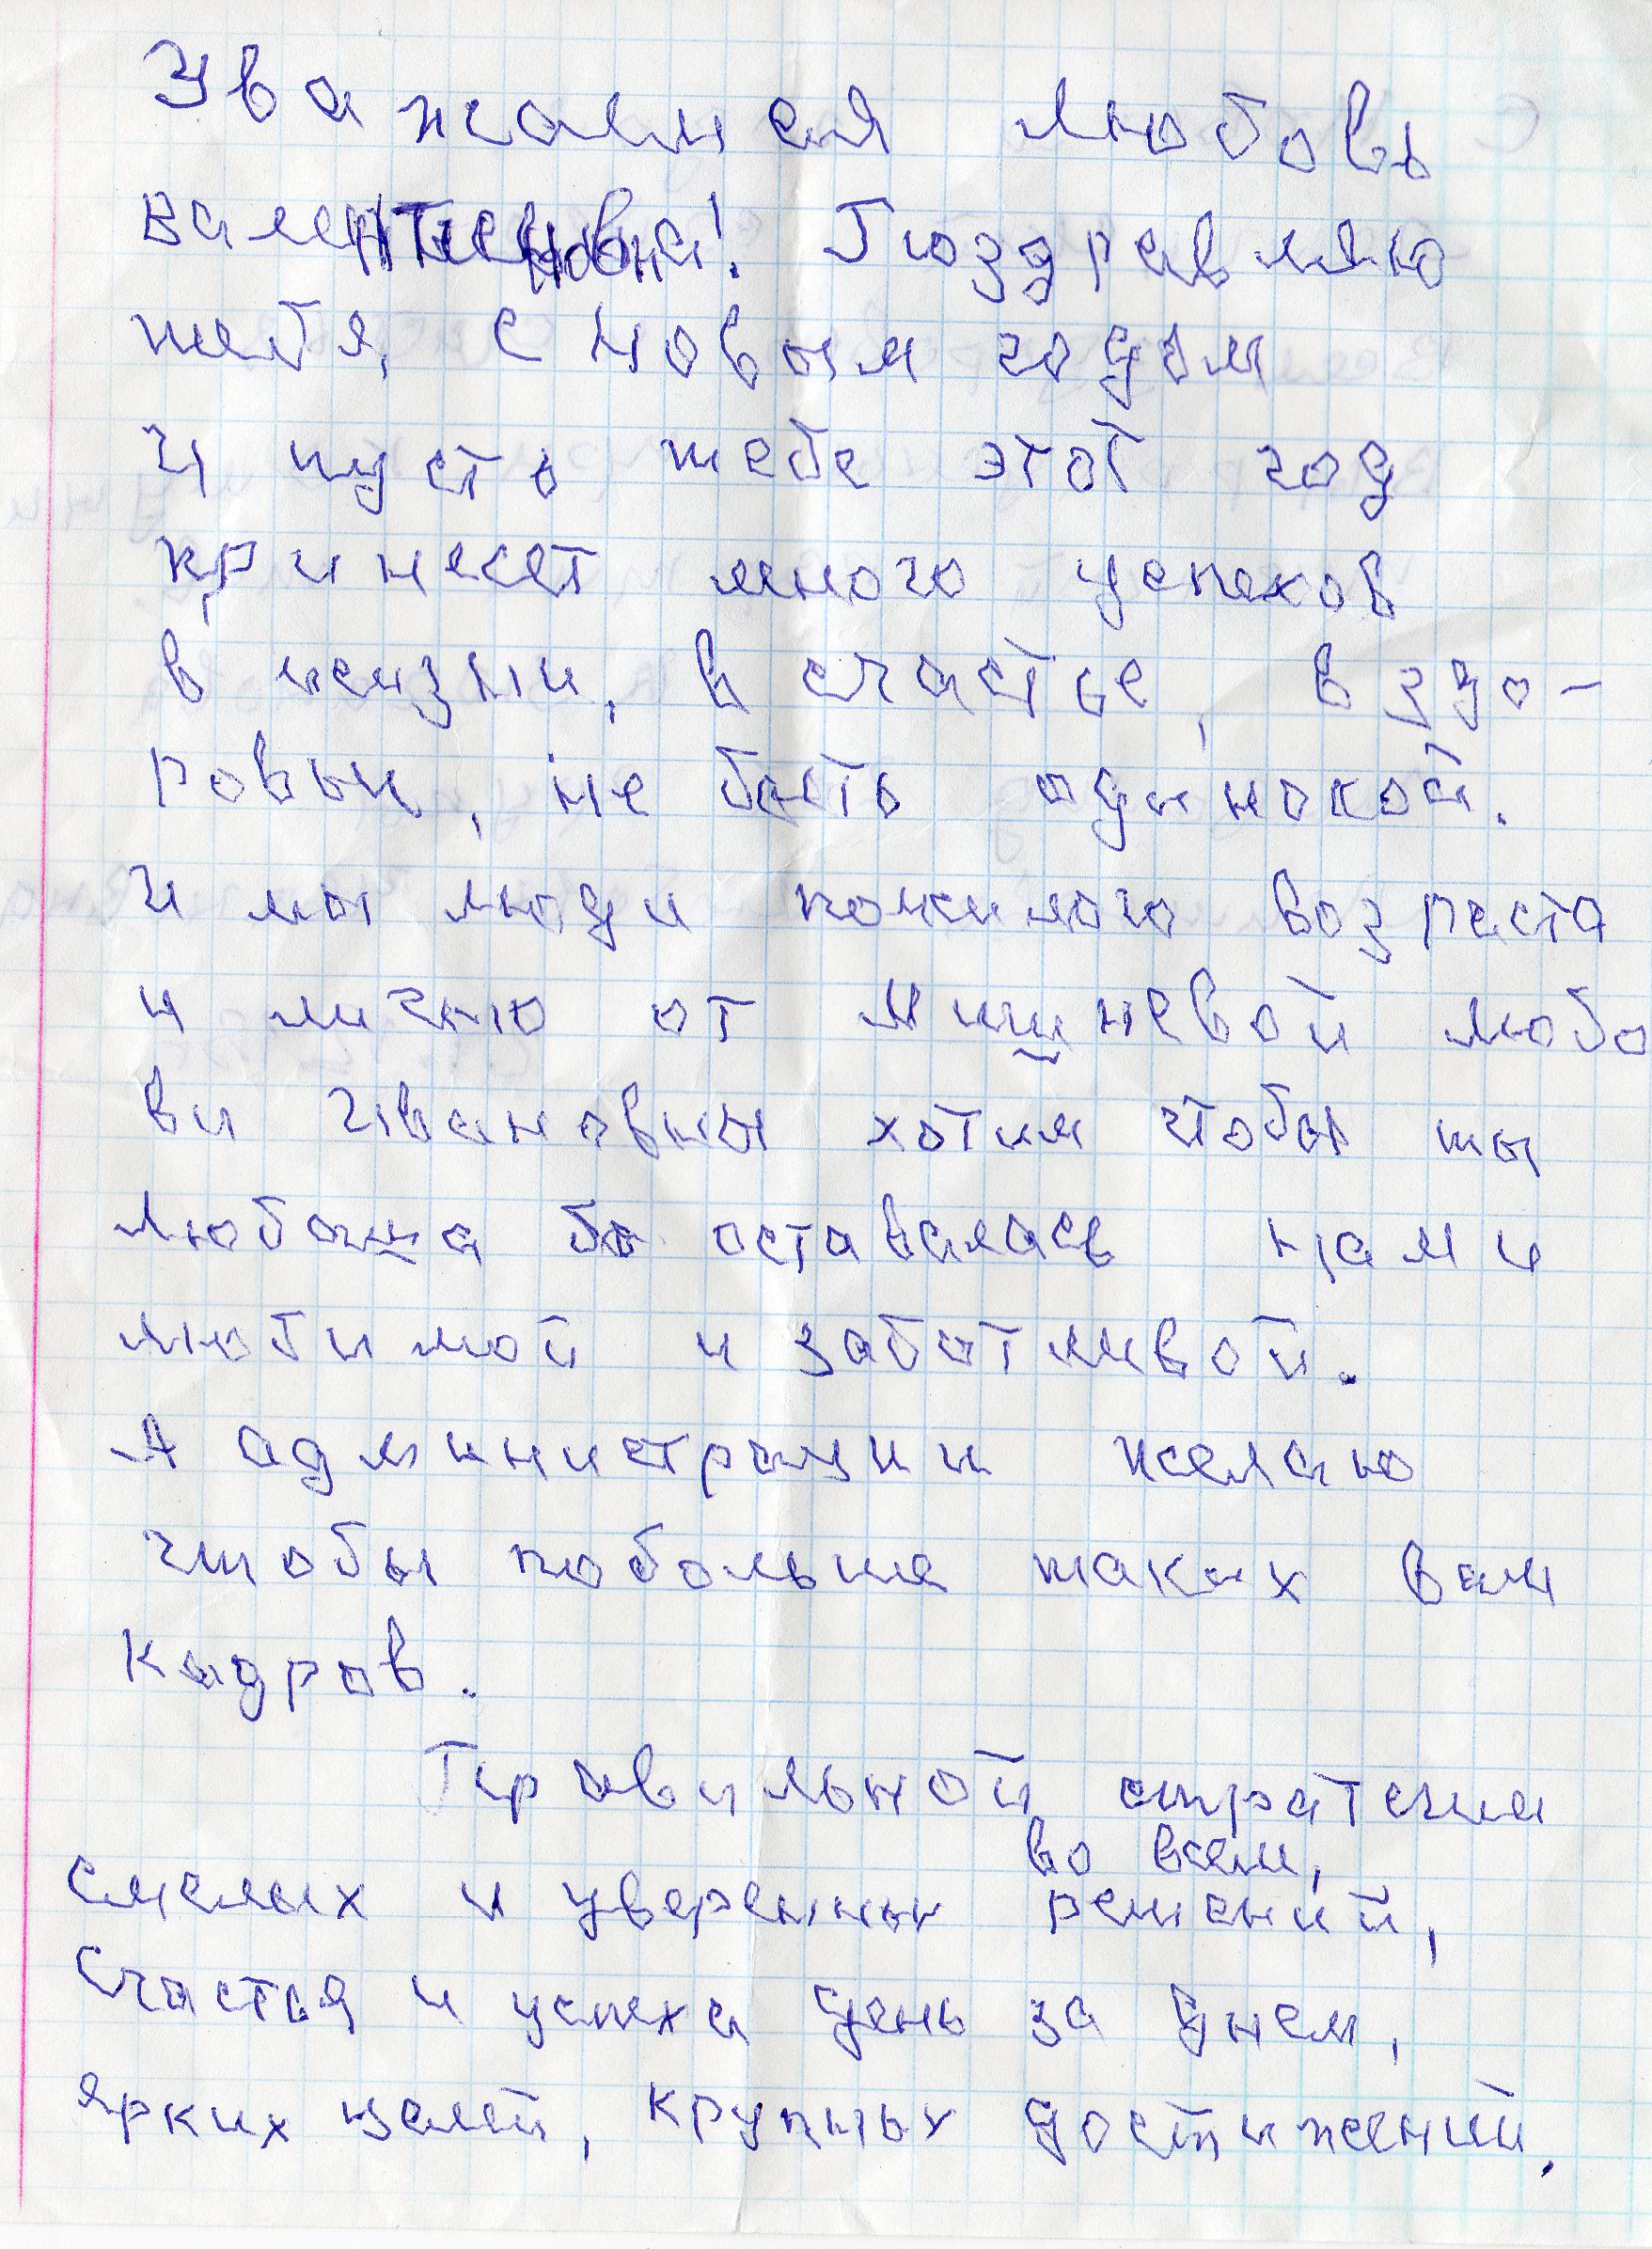 Уважаемая Любовь
Валентиновна! Поздравляю
тебя, с новым годом
И пусть тебе этот год
принесет много успехов
в жизни, в счастье, в здо-
ровьи, не быть одинокой.
И мы люди пожилого возраста
и лично от Мишневой Любо
ви Ивановны хотим чтобы ты
Любаша оставалась нами
любимой и заботливой.
А администрации желаю
чтобы побольше таких вам
кадров.
Правильной стратегии
во всем,
Смелых и уверенных решений,
Счастья и успеха день за днем,
Ярких целей, крупных достижений.